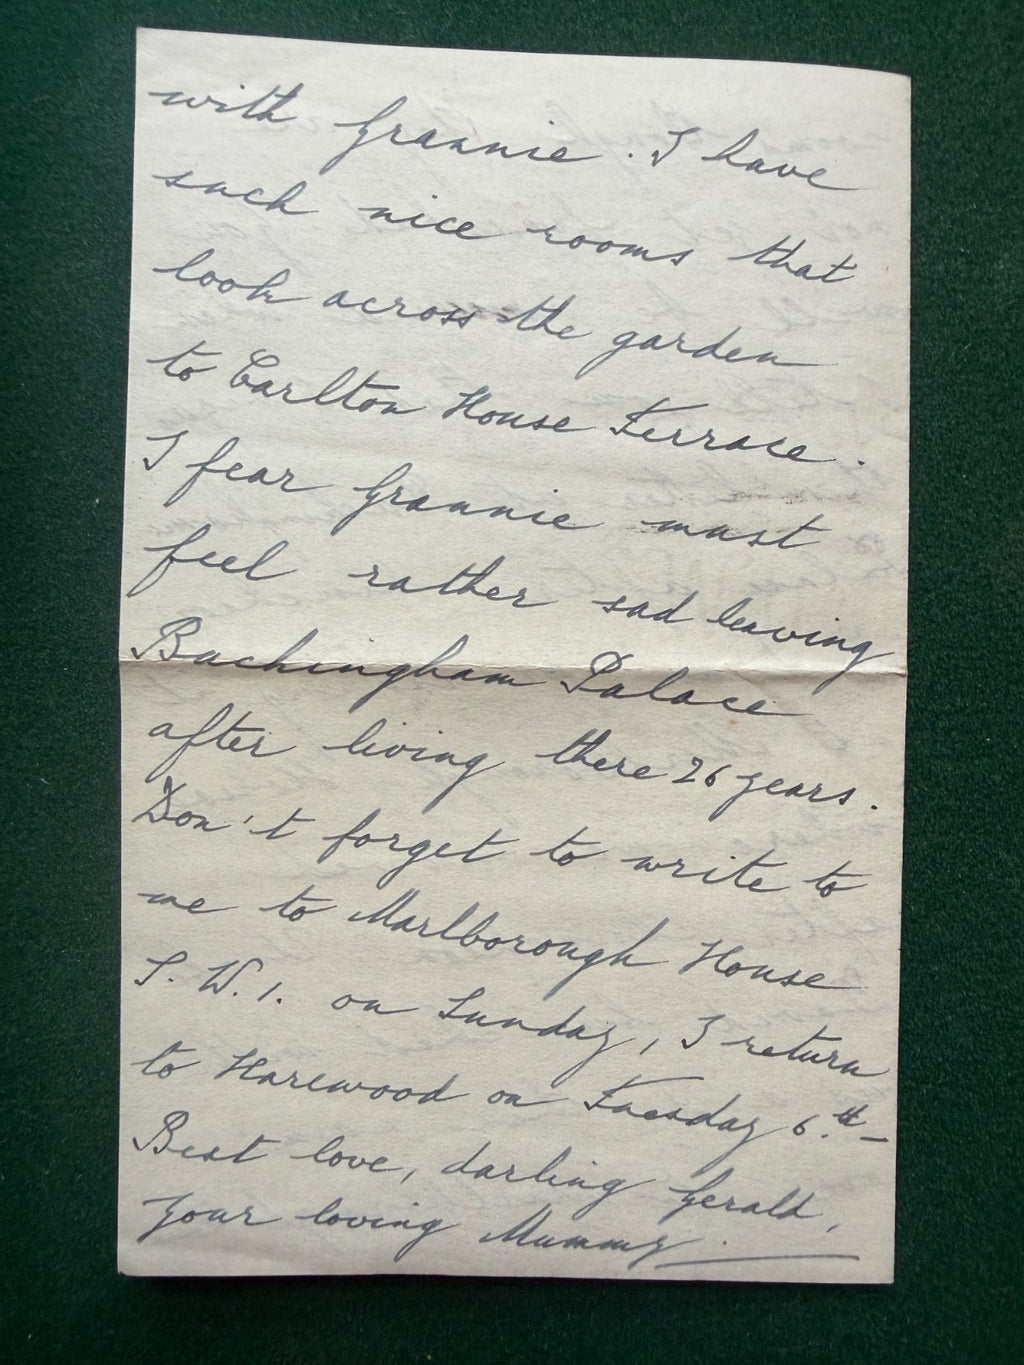 with Grannie. I have
such nice rooms that
look across the garden
to Carlton House Terrace.
I fear Grannie must
feel rather sad leaving
Buckingham Palace
after living there 26 years.
Don't forget to write to
me to Marlborough House
S.W.1. on Sunday, I return
to Harewood on Tuesday 6th –
Best love, darling Gerald,
Your loving Mummy.